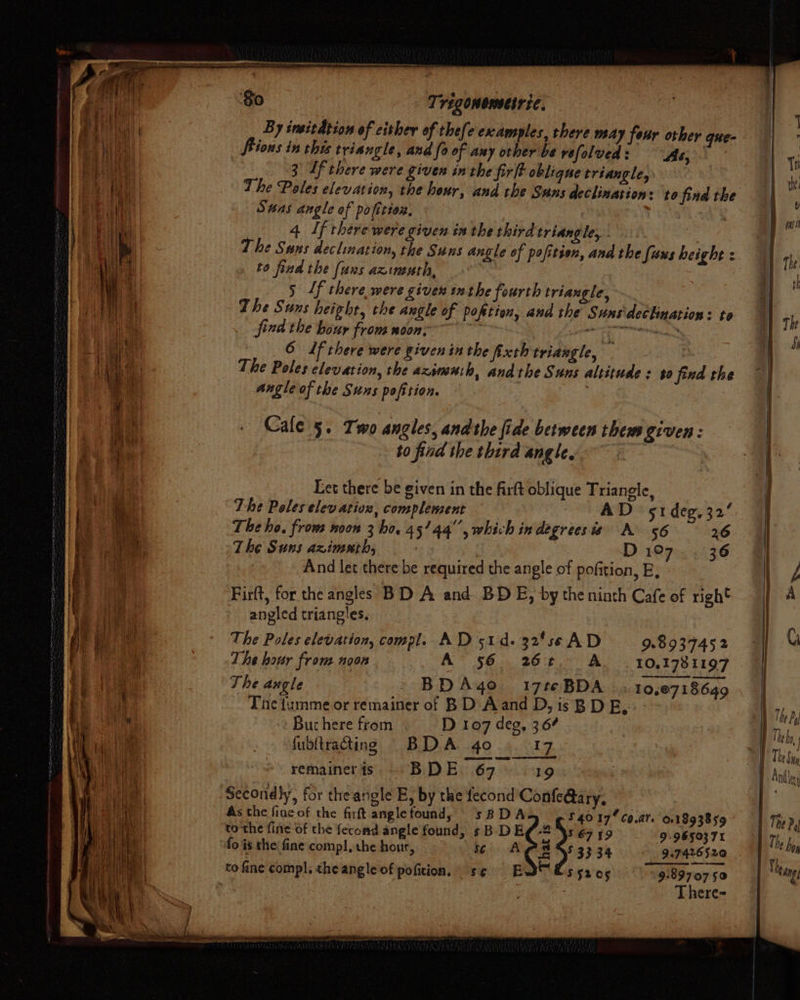 80 Trigonometrie.
By imitation of either of these examples, there may four other que-
stions in this triangle, and so of any other be resolved: As,
3 If there were given in the first oblique triangle,
The Poles elevation, the hour, and the Suns declination: to find the
Suns angle of position.
4 If there were given in the third triangle,
The Suns declination, the Suns angle of position, and the suns height:
to find the suns azimuth,
5 If there were given in the fourth triangle,
The Suns height, the angle of position, and the Suns declination: to
find the hour from noon.
6 If there were given in the sixth triangle,
The Poles elevation, the azimuth, and the Suns altitude: to find the
angle of the Suns position.
Case 5. Two angles, and the side between them given:
to find the third angle.
Let there be given in the first oblique Triangle,
The Poles elevation, complement AD 51 deg. 32'
The ho. from noon 3 ho. 45' 44'', which in degrees is A 56 26
The Suns azimuth, D 107 36
And let there be required the angle of position, E,
First, for the angles BDA and BDE, by the ninth Case of right
angled triangles.
The Poles elevation, compl. AD 51d. 32' se AD 9.8937452
The hour from noon A 56 26 t A 10.1781197
The angle BDA 40 17 te BDA 10,0718649
The summe or remainer of BDA and D, is BDE,
But here from D 107 deg. 36'
substracting BDA 40 17
remainer is BDE 67 19
Secondly, for the angle E, by the second Consectary,
As the sine of the first angle found, s BDA S 40 17' co.ar. 0.1893859
to the sine of the second angle found, s BDE S 67 19 9.9650371
so is the sine compl. the hour, se A S 33 34 9.7426520
to sine compl. the angle of position. se E S 52 05 9.8970750
There-